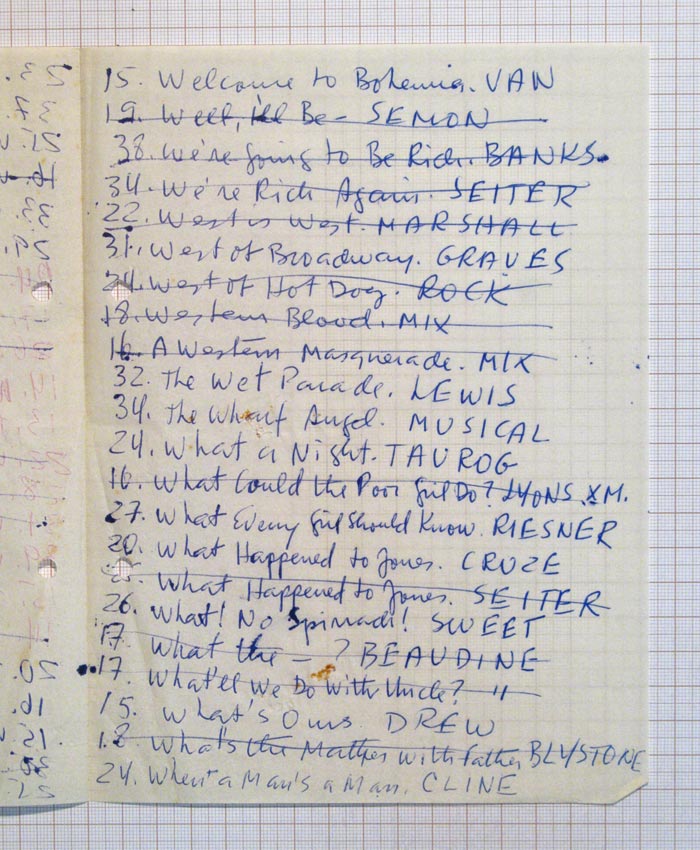 15. Welcome to Bohemia. VAN
19. Well, I'll Be - SEMON
38. We're going to Be Rich. BANKS.
34. We're Rich Again. SEITER
22. West is West. MARSHALL
31. West of Broadway. GRAVES
24. West of Hot Dog. ROCK
18. Western Blood. MIX
16. A Western Masquerade. MIX
32. The Wet Parade. LEWIS
34. The Wharf Angel. MUSICAL
24. What a Night. TAUROG
16. What Could the Poor Girl Do? LYONS. XM.
27. What Every Girl Should Know. RIESNER
20. What Happened to Jones. CRUZE
What Happened to Jones. SEITER
26. What! No Spinach! SWEET
17. What the - ? BEAUDINE
17. What'll We Do With Uncle? "
15. What's Ours. DREW
18. What's the Matter with Father BLYSTONE
24. When a Man's a Man. CLINE